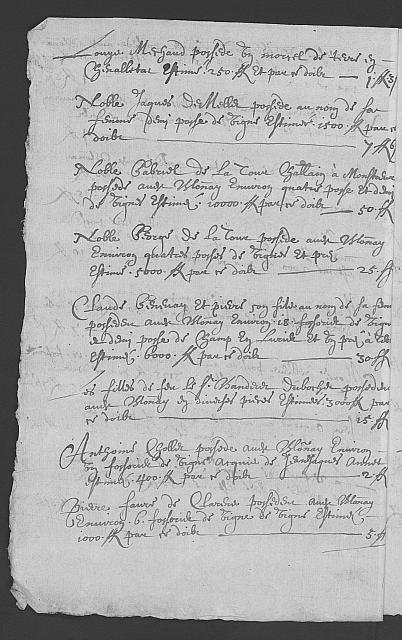 Louys Mechaud possede un morcel de terre en
Chevalletaz Estimé 250 ff Et par ce doibt — 1 ff 3
Noble Jaques de Mellet possede au nom de sa
femme demi pose de vigne Estimée 1500 ff par ce
doibt — 7 ff 6
Noble Gabriel de La Tour Challain à Monstreux
possede audit Monay Environ quatre pose et demi
de vigne Estimées 10000 ff par ce doibt — 50 ff
Noble George de La Tour possede audit Monay
Environ quatres poses de vignes Et prez
Estimé 5000 ff par ce doibt — 25 ff
Claude Et pierre son filz au nom de sa fem
possedent audit Monay Environ 18 fossorier de vigne
Et demi pose de Champ En Et un prez à
Estimés 6000 ff par ce doibt — 30 ff
Les filles de feu le Sr Banderet Dubochet possedent
audit Monay en diverses pieces Estimées 3000 ff par
ce doibt — 15 ff
Anthoine Chollet possede audit Monay Environ
un fossorier de vigne Acquis de Jean Jaques
Estimé 400 ff par ce doibt — 2 ff
Pierre favre de Clarens possedent audit Monay
Environ 6 fossorier de vigne de vigne Estimé
1000 ff par ce doibt — 5 ff